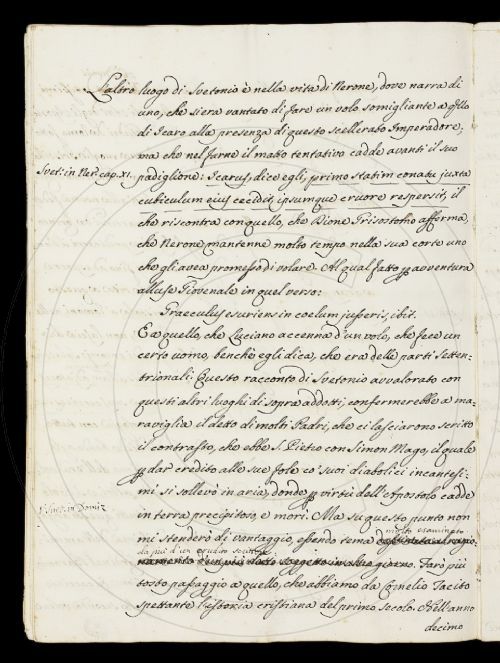 L'altro luogo di Svetonio è nella vita di Nerone, dove narra di
uno, che si era vantato di fare un volo somigliante a q̃llo
di Icaro alla presenza di questo scellerato Imperadore,
ma che nel farne il matto tentativo cadde avanti il suo
Svet: in Ner: cap. XI.
padiglione: Icarus, dice egli, primo statim conatu juxta
cubiculum ejus cecidit, ipsumque cruore respersit, il
che riscontra con quello, che Dione Grisostomo afferma,
che Nerone mantenne molto tempo nella sua corte uno
che gli avea promesso di volare. Al qual fatto p avventura
alluse Giovenale in quel verso:
Graeculus esuriens in coelum jusseris, ibit.
E a quello, che Luciano accenna d'un volo, che fece un
certo uomo, benchè egli dica, che era delle parti Setten-
trionali. Questo racconto di Svetonio avvalorato con
questi altri luoghi di sopra addotti, confermerebbe a ma-
raviglia il detto di molti Padri, che ci lasciarono scritto
il contrasto, che ebbe S. Pietro con Simon Mago, il quale
p dar credito alle sue fole co' suoi diabolici incantesi-
mi si sollevò in aria, donde p virtù dell'Apostolo cadde
in terra precipitoso, e morì. Ma su questo punto non
molto esaminato
mi stenderò di vantaggio, essendo tema
da più d'un erudito scrittore
Farò più
tosto passaggio a quello, che abbiamo da Cornelio Tacito
spettante l'istoria cristiana del primo secolo. Nell'anno
decimo